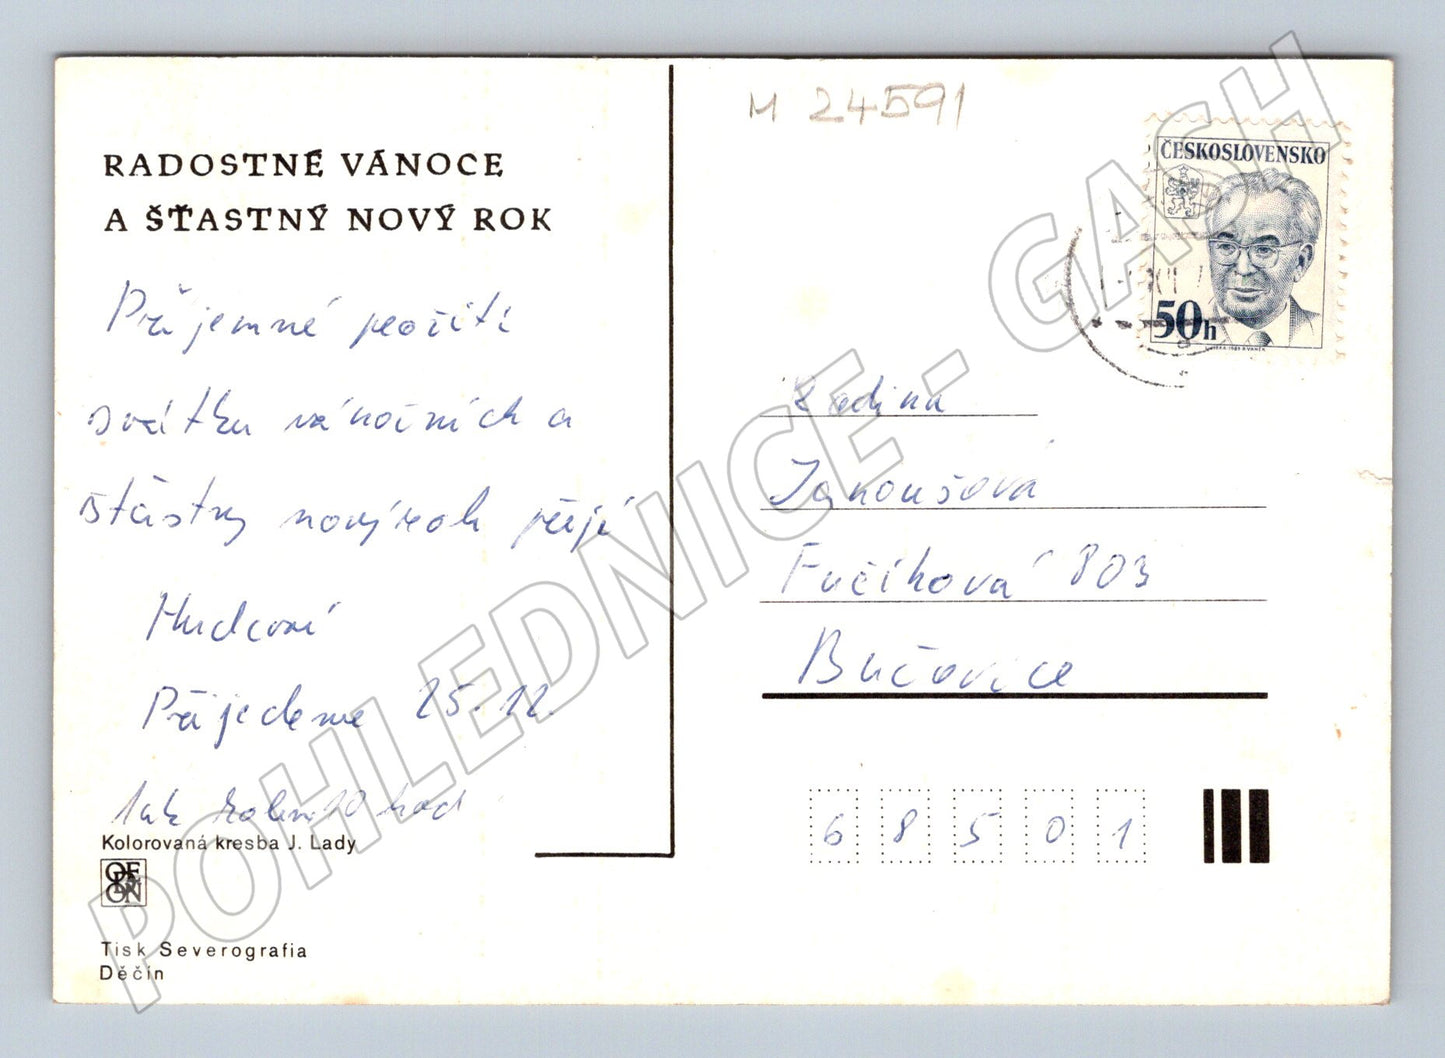 RADOSTNÉ VÁNOCE
A ŠŤASTNÝ NOVÝ ROK
Příjemné prožití
svátku vánočních a
štástny nový rok přejí
Přijedeme 25. 12.
hod
Kolorovaná kresba J. Lady
Tisk Severografia
Děčín
M 24591
ČESKOSLOVENSKO
50h
XII
Rodina
Janoušova
Fučíkova 803
Bučovice
68501
POHLEDNICE - GASH